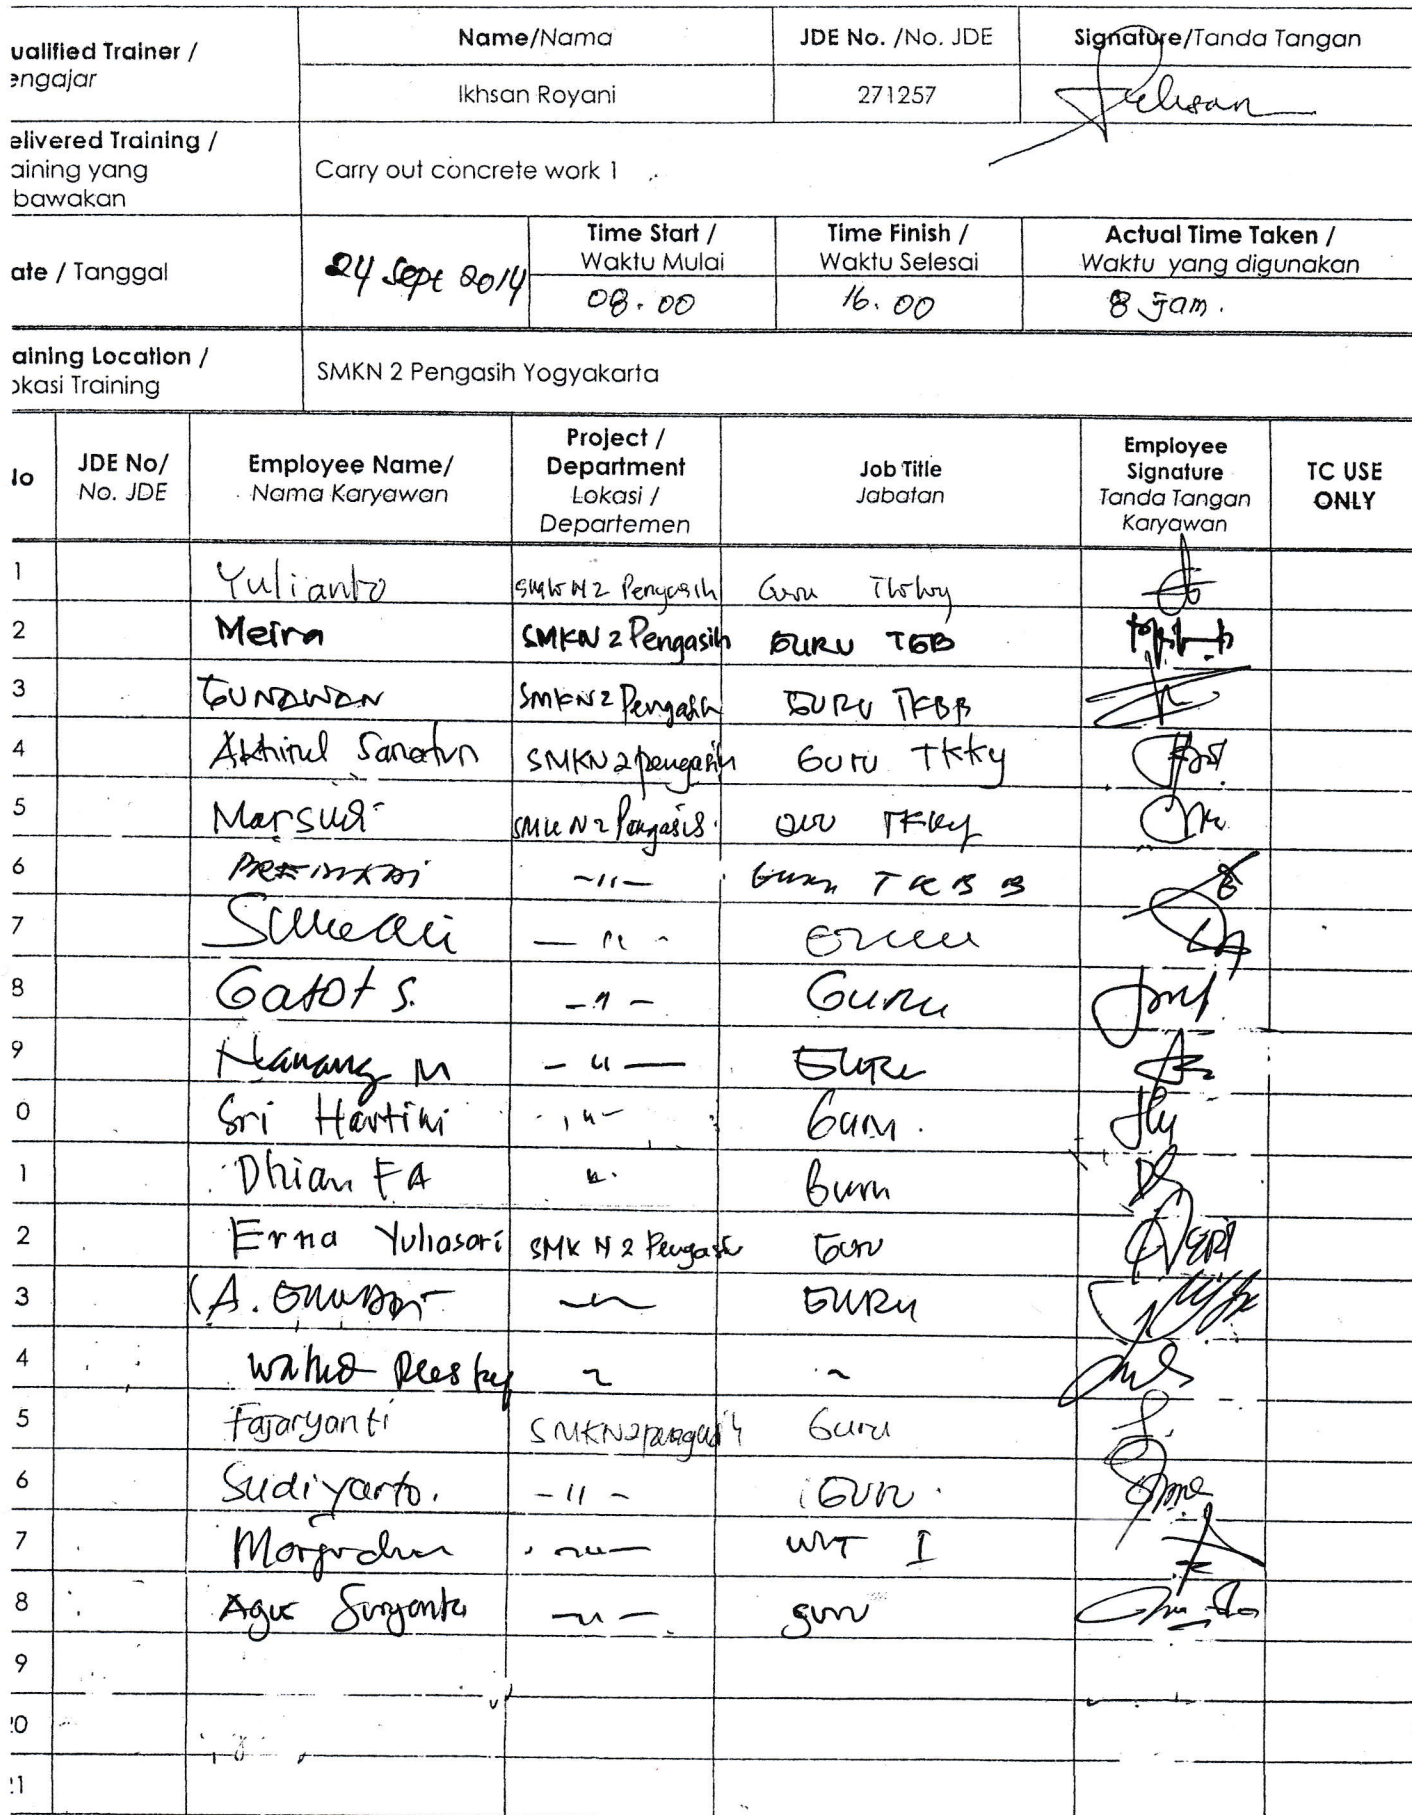 ualified Trainer /
engajar
Name/Nama
JDE No. /No. JDE
Signature/Tanda Tangan
Ikhsan Royani
271257
elivered Training /
aining yang
bawakan
Carry out concrete work 1
ate / Tanggal
24 Sept 2014
Time Start /
Waktu Mulai
Time Finish /
Waktu Selesai
Actual Time Taken /
Waktu yang digunakan
08.00
16.00
8 Jam.
aining Location /
okasi Training
SMKN 2 Pengasih Yogyakarta
No
JDE No/
No. JDE
Employee Name/
Nama Karyawan
Project /
Department
Lokasi /
Departemen
Job Title
Jabatan
Employee
Signature
Tanda Tangan
Karyawan
TC USE
ONLY
1 Yulianto SMK N 2 Pengasih Guru
2 Meira SMKN 2 Pengasih GURU TGB
3 GUNAWAN SMKN 2 Pengasih GURU TKBB
4 Akhirul SMKN 2 pengasih Guru TKKy
5 Marsudi SMK N 2 TKKy
6 -11- Guru TKBB
7 - 11 - Guru
8 Gatot S. - 11 - Guru
9 Nanang M - 11 - GURU
0 Sri Hartini - 11 - Guru.
1 Dhian FA 11 Guru
2 Erna Yuliasari SMK N 2 Pengasih Guru
3 - 11 - GURU
4 ~ ~
5 Fajaryanti SMKN 2 pengasih Guru
6 Sudiyarto. - 11 - Guru.
7 - 11 - I
8 Agus Suryanta - 11 - guru
9
20
21